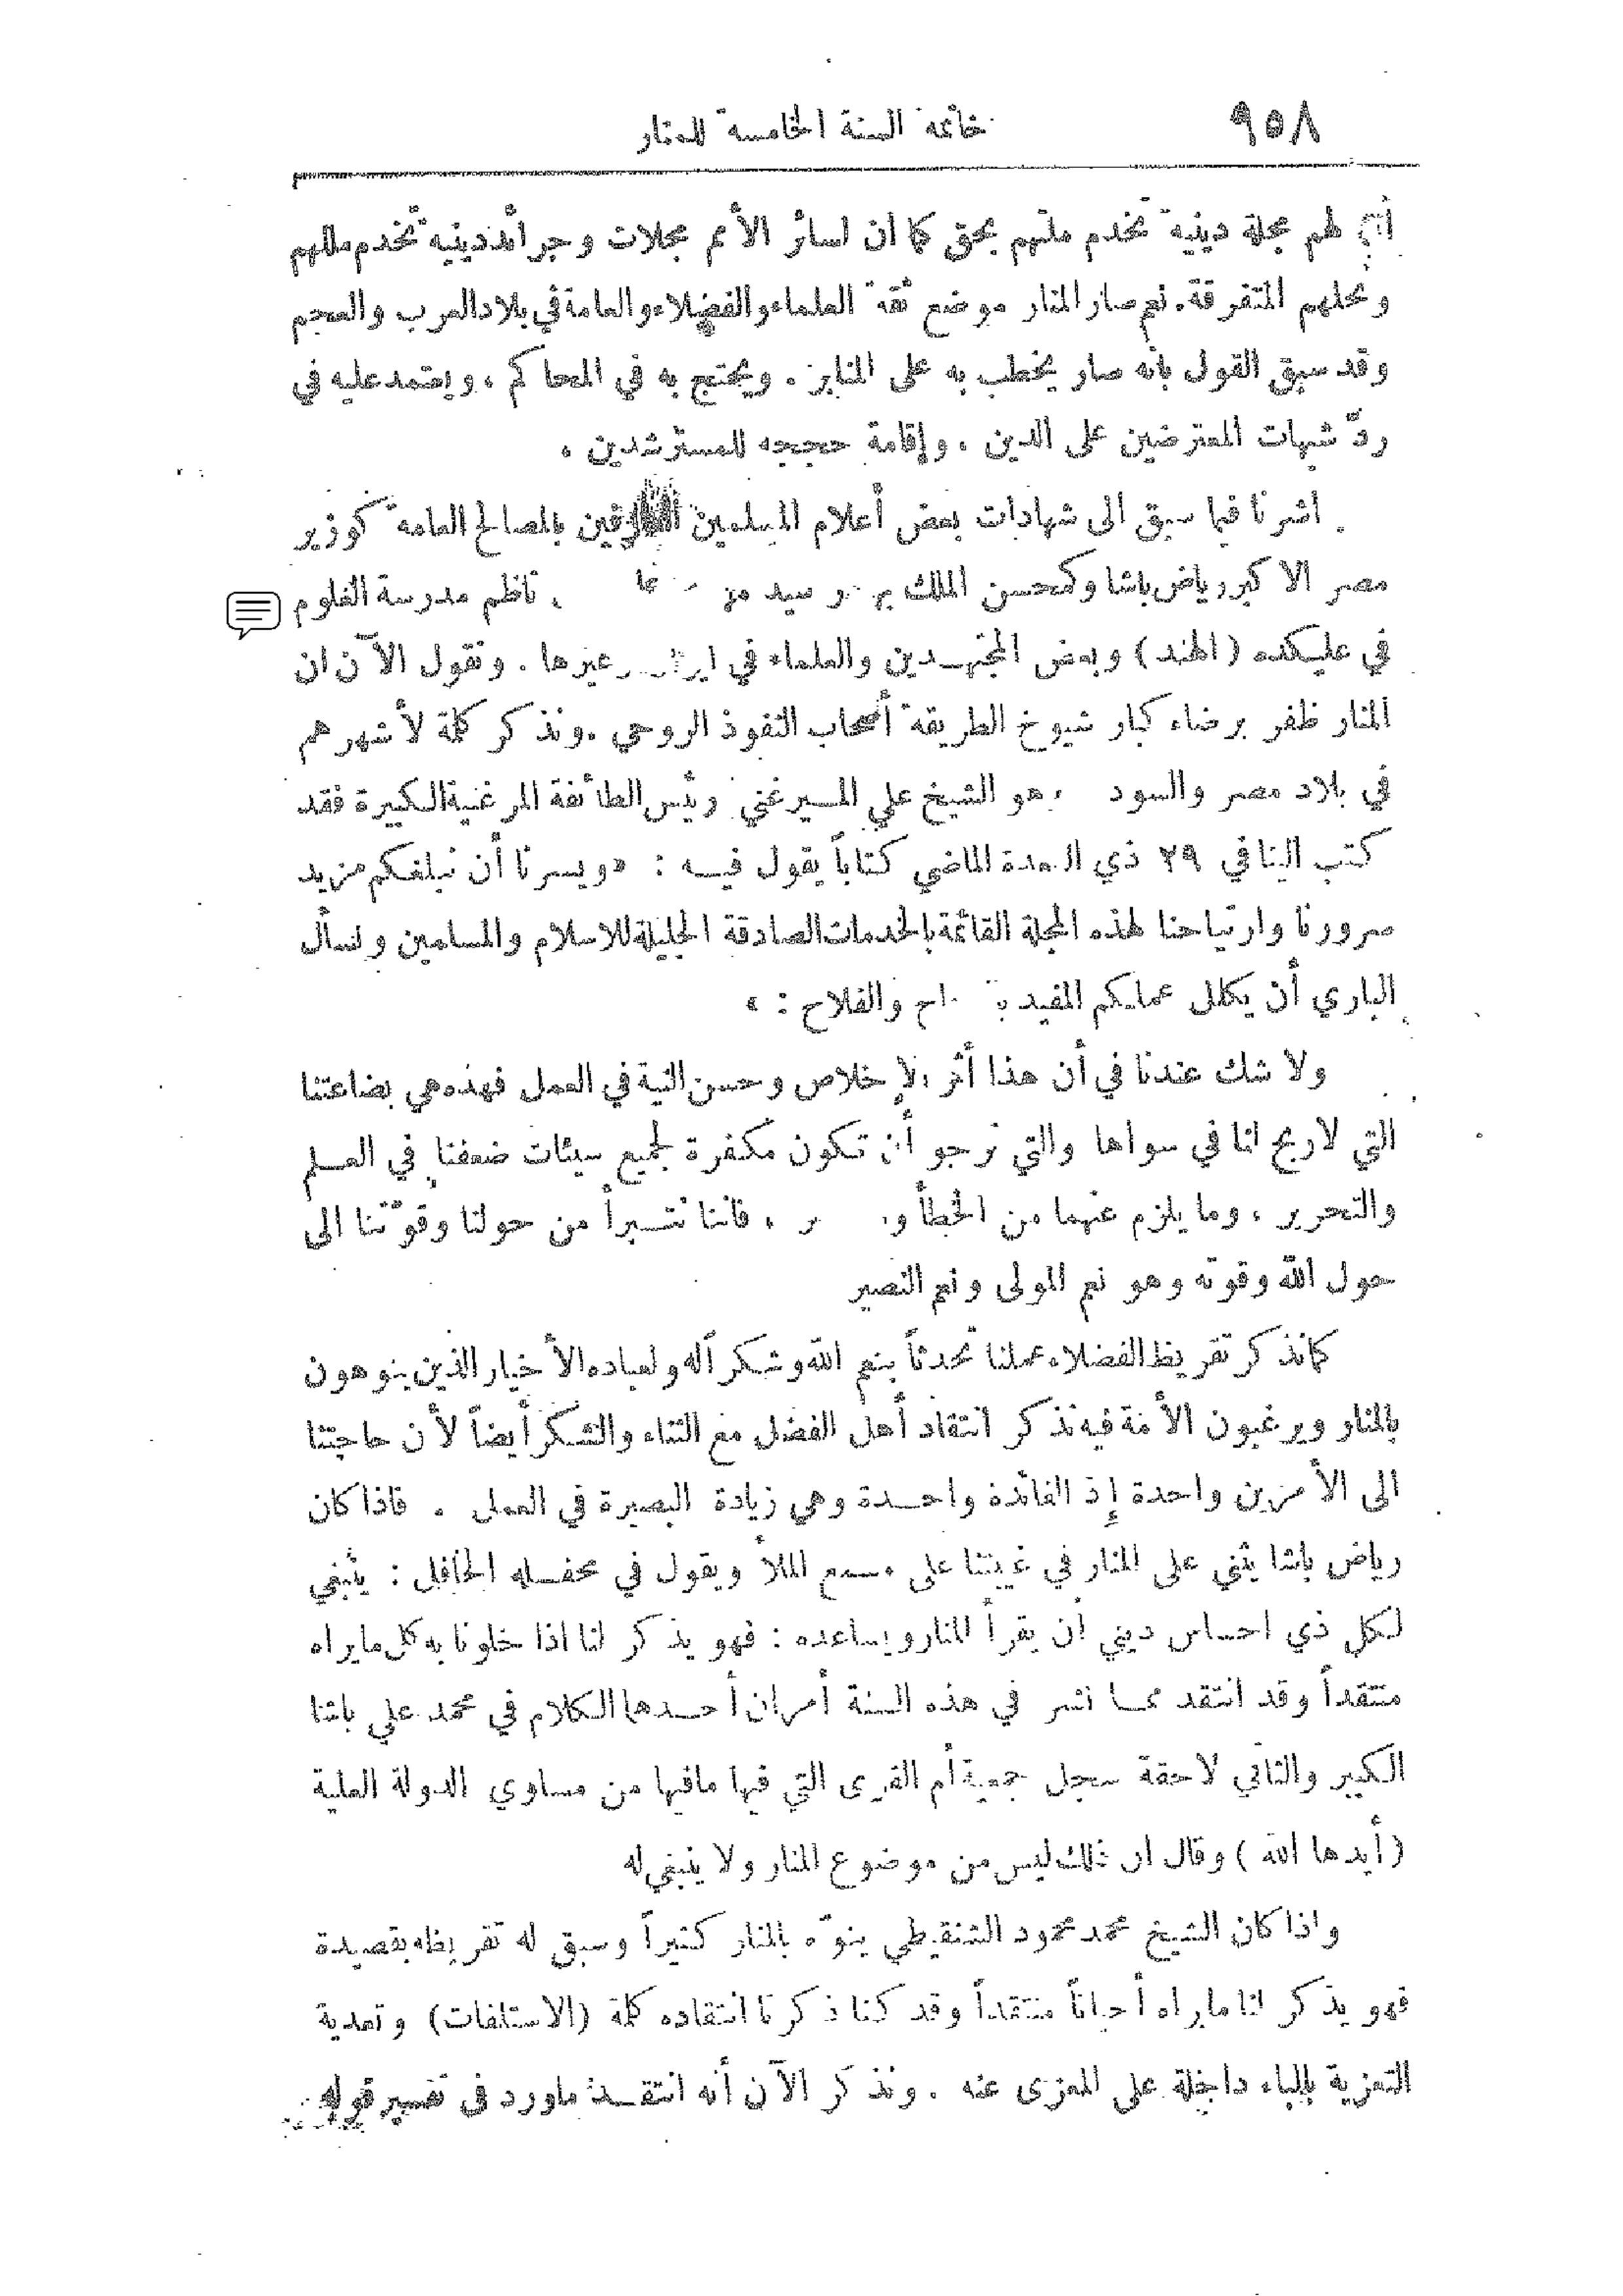 ٩٥٨
خاتمة السنة الخامسة للمنار
أن لهم مجلة دينية تخدم ملتهم بحق كما ان لسائر الأمم مجلات وجرائد دينية تخدم مللهم
ونحلهم المتفرقة. نعم صار المنار موضع ثقة العلماء والفضلاء والعامة في بلاد العرب والعجم
وقد سبق القول بأنه صار يخطب به على المنابر. ويحتج به في المحاكم، ويعتمد عليه في
ردّ شبهات المعترضين على الدين، وإقامة حججه للمسترشدين،
اشرنا فيما سبق الى شهادات بعض أعلام المسلمين العارفين بالمصالح العامة كوزير
مصر الاكبر رياض باشا وكمحسن الملك سيد ناظم مدرسة العلوم
في عليكده (الهند) وبعض المجتهدين والعلماء في ايران وغيرها. ونقول الآن ان
المنار ظفر برضاء كبار شيوخ الطريقة أصحاب النفوذ الروحي. ونذكر كلمة لأشهرهم
في بلاد مصر والسود هو الشيخ علي الميرغني رئيس الطائفة المرغنية الكبيرة فقد
كتب الينا في ٢٩ ذي القعدة الماضي كتاباً يقول فيه: «ويسرنا أن نبلغكم مزيد
سرورنا وارتياحنا لهذه المجلة القائمة بالخدمات الصادقة الجليلة للاسلام والمسلمين ونسأل
الباري أن يكلل عملكم المفيد والفلاح: »
ولا شك عندنا في أن هذا أثر الإخلاص وحسن النية في العمل فهذه هي بضاعتنا
التي لا ربح لنا في سواها والتي نرجو أن تكون مكفرة لجميع سيئات ضعفنا في العلم
والتحرير، وما يلزم عنهما من الخطأ ، فاننا نتبرأ من حولنا وقوّتنا الى
حول الله وقوته وهو نعم المولى ونعم النصير
كما نذكر تقريظ الفضلاء عملنا تحدثاً بنعم الله وشكراً له ولعباده الأخيار الذين ينوهون
بالمنار ويرغبون الأمة فيه نذكر انتقاد أهل الفضل مع الثناء والشكر أيضاً لأن حاجتنا
الى الأمرين واحدة إذ الفائدة واحدة وهي زيادة البصيرة في العمل. فاذا كان
رياض باشا يثني على المنار في غيبتنا على مسمع الملأ ويقول في محفله الحافل: ينبغي
لكل ذي احساس ديني أن يقرأ المنار ويساعده: فهو يذكر لنا اذا خلونا به كل ما يراه
منتقداً وقد انتقد مما نشر في هذه السنة أمران أحدهما الكلام في محمد علي باشا
الكبير والثاني لاحقة سجل جمعية أم القرى التي فيها ما فيها من مساوي الدولة العلية
(أيدها الله) وقال ان ذلك ليس من موضوع المنار ولا ينبغي له
واذا كان الشيخ محمد محمود الشنقيطي ينوّه بالمنار كثيراً وسبق له تقريظه بقصيدة
فهو يذكر لنا ما يراه أحياناً منتقداً وقد كنا ذكرنا انتقاده كلمة (الاستلفات) وتعدية
التعزية بالباء داخلة على المعزى عنه. ونذكر الآن أنه انتقد ما ورد في تفسير قوله